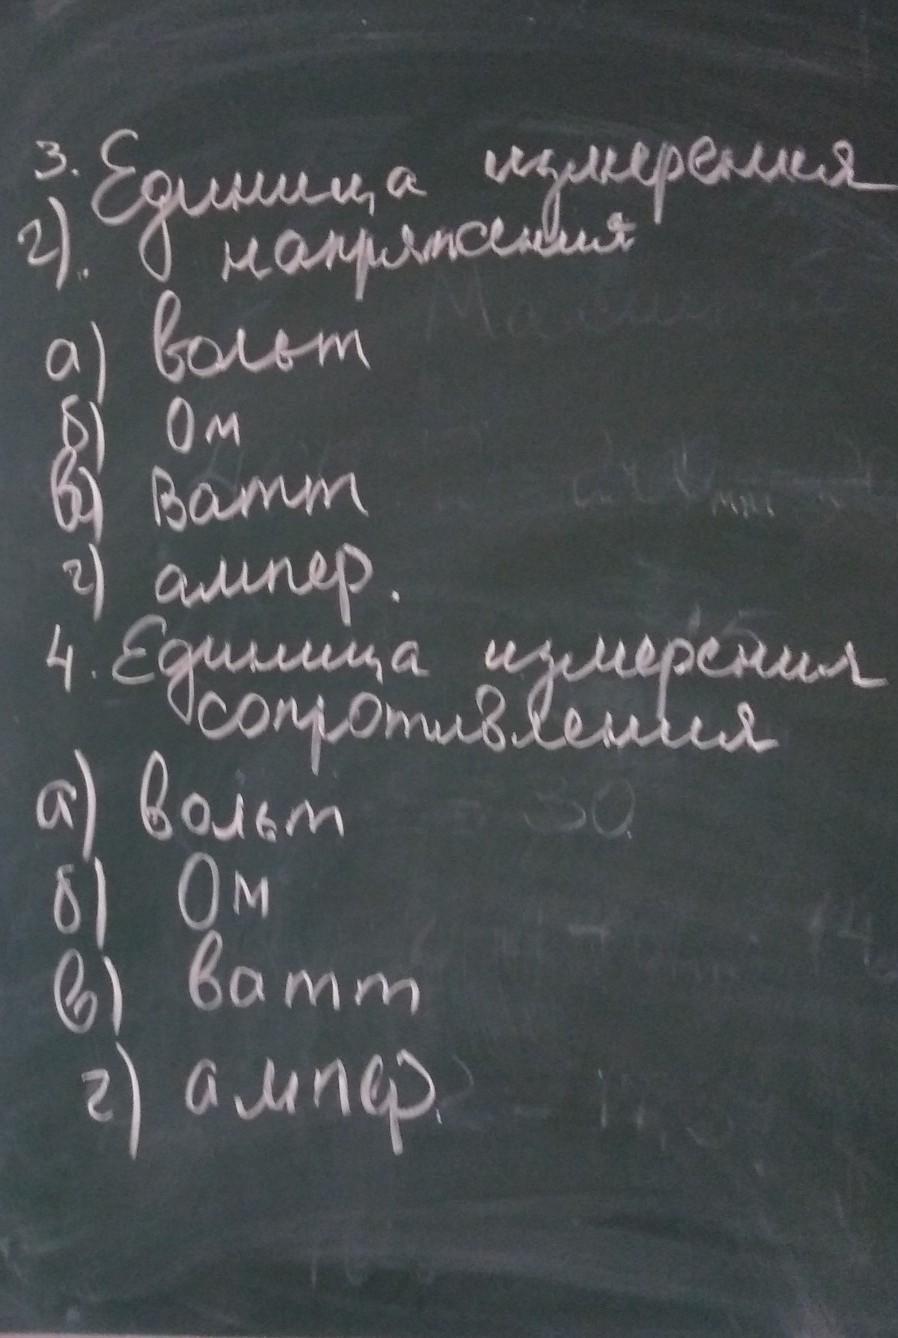 3. Единица измерения
г). напряжения
а) вольт
б) Ом
в) Ватт
г) ампер.
4. Единица измерения
сопротивления
а) вольт
б) Ом
в) ватт
г) ампер.